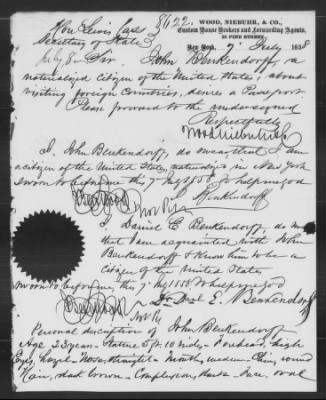 8622.
WOOD, NIEBUHR, & CO.,
Custom House Brokers and Forwarding Agents,
New York, 7th July 1858
Hon Lewis Cass
Secretary of State
July 8 Sir John Benkendorff, a
naturalized Citizen of the United States, about
visiting foreign Countries, desires a Passport.
Please forward to the undersigned
Respectfully
Wood Niebuhr & Co
I, John Benkendorff, do swear that I am
a citizen of the United States, naturalized in New York
Sworn to before me this 7 July 1858 So help me god
Benkendorff
I Daniel E. Benkendorff, do swear
that I am acquainted with John
Benkendorff & know him to be a
Citizen of the United States
Sworn to before me this 7 July 1858 So help me god
E. Benkendorff
Personal description of John Benkendorff
Age 23 years - Stature 5 ft. 10 inches - Forehead, high
Eyes, hazel - Nose, straight - Mouth, medium - Chin, round
Hair, dark brown - Complexion, dark - Face, oval